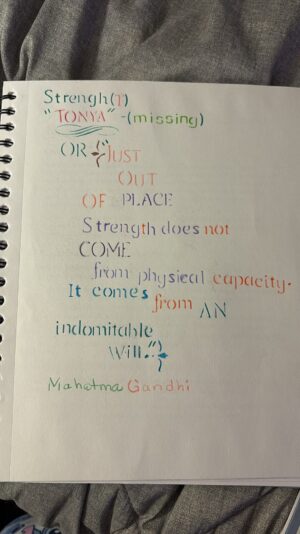 Strengh(T)
"TONYA" -(missing)
OR JUST
OUT
OF PLACE
Strength does not
COME
from physical capacity.
It comes
from AN
indomitable
Will.
Mahatma Gandhi